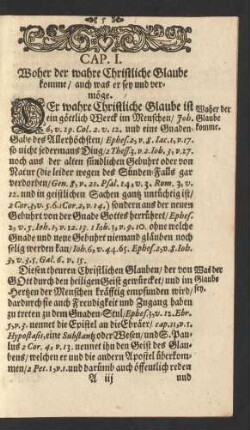 5
CAP. I.
Woher der wahre Christliche Glaube
komme/ auch was er sey und ver-
möge.
DEr wahre Christliche Glaube ist
ein göttlich Werck im Menschen/ Joh.
6, v. 29. Col. 2. v. 12. und eine Gnaden-
Gabe des Allerhöchsten/ Ephes. 2, v. 8. Iac. 1, v. 17.
so nicht jedermans Ding/ 2 Thess. 3, v. 2. Joh. 3, v. 27.
noch aus der alten sündlichen Gebuhrt oder von
Natur (die leider wegen des Sünden-Falls gar
verdorben/ Gen. 8, v. 21. Psal. 14, v. 3. Rom. 3, v.
12. und in geistlichen Sachen gantz untüchtig ist/
2 Cor. 3, v. 5. 6. 1 Cor. 2, v. 14.) sondern aus der neuen
Gebuhrt von der Gnade Gottes herrühret/ Ephes.
2, v. 5. Joh. 1, v. 12. 13. 1 Joh. 3, v. 9. 10. ohne welche
Gnade und neue Gebuhrt niemand gläuben noch
selig werden kan/ Joh. 6, v. 44. 65. Ephes. 2, v. 8. Joh.
3, v. 3. 5. Gal. 6. v. 15.
Waher der
Glaube
komme.
Diesen theuren Christlichen Glauben/ der von
GOtt durch den heiligen Geist gewürcket/ und im
Hertzen der Menschen kräfftig empfunden wird/
dardurch sie auch Freudigkeit und Zugang haben
zu treten zu dem Gnaden-Stul/ Ephes. 3, v. 12. Ebr.
5, v. 3. nennet die Epistel an die Ebräer/ cap. 11, v. 1.
Hypostasis, eine Substantz oder Wesen/ und S. Pau-
lus 2 Cor. 4, v. 13. nennet ihn den Geist des Glau-
bens/ welchen er und die andern Apostel überkom-
men/ 2 Pet. 1, v. 1. und darümb auch öffentlich reden
Was der
Glaube
sey.
A iij
und